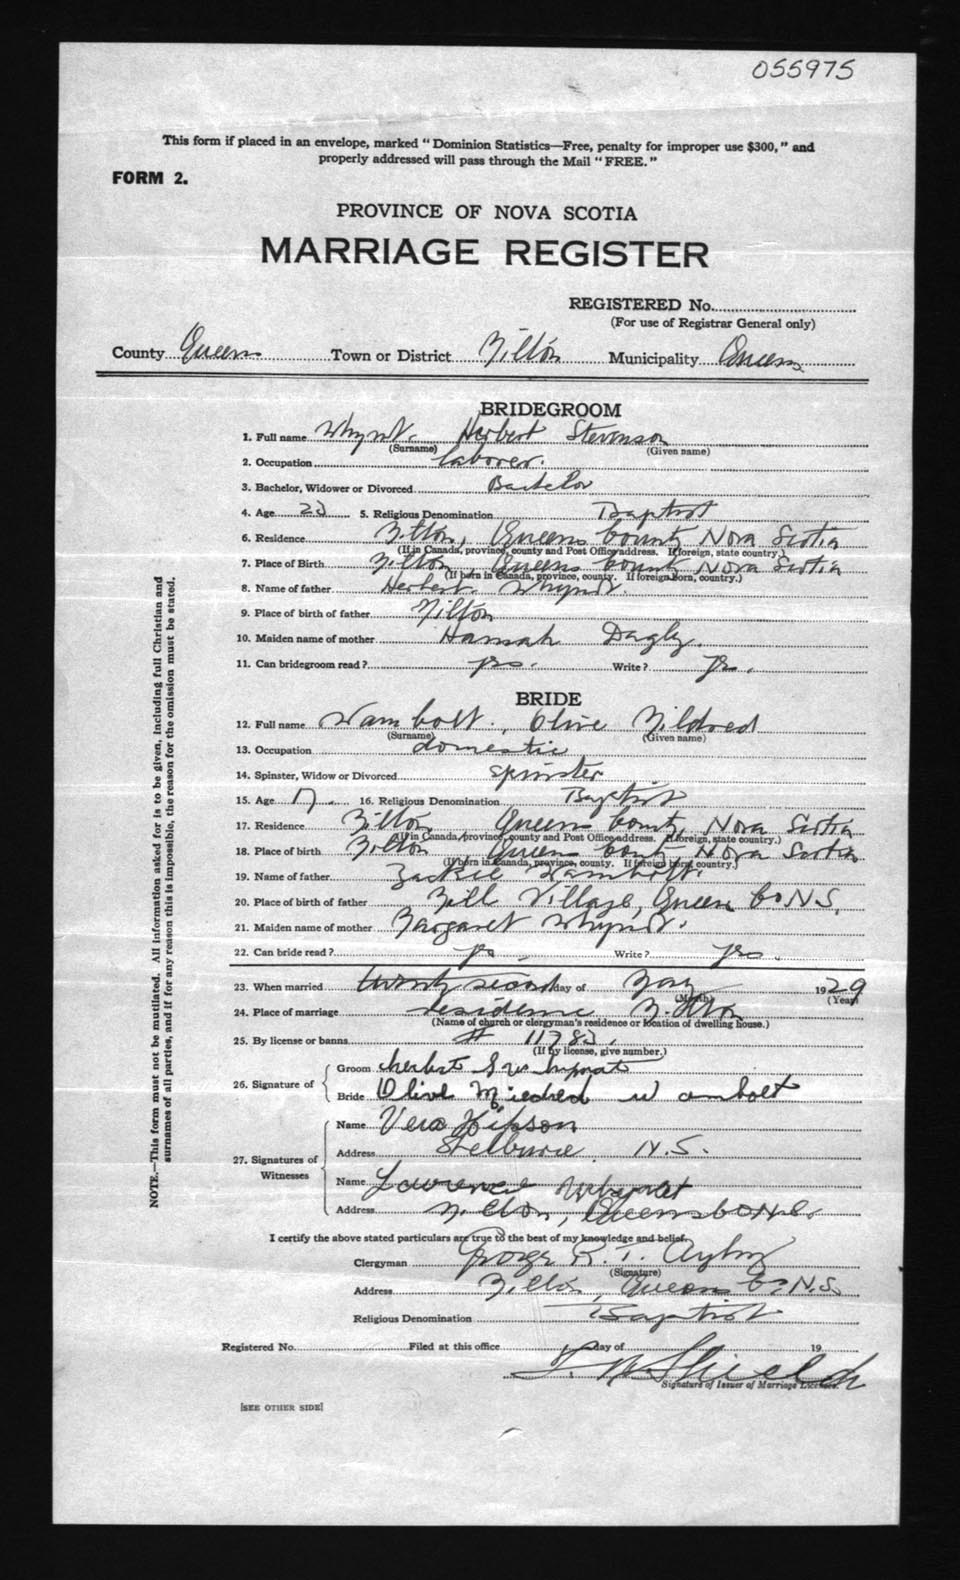 055975
This form if placed in an envelope, marked "Dominion Statistics—Free, penalty for improper use $300," and
properly addressed will pass through the Mail "FREE."
FORM 2.
PROVINCE OF NOVA SCOTIA
MARRIAGE REGISTER
REGISTERED No.
(For use of Registrar General only)
County Queens Town or District Milton Municipality Queens
BRIDEGROOM
1. Full name Whynot. Herbert Stevenson
(Surname) (Given name)
2. Occupation laborer.
3. Bachelor, Widower or Divorced Bachelor
4. Age 5. Religious Denomination Baptist
6. Residence Milton, Queens County Nova Scotia
(If in Canada, province, county and Post Office address. If foreign, state country.)
7. Place of Birth Milton, Queens County Nova Scotia
(If born in Canada, province, county. If foreign born, country.)
8. Name of father Herbert Whynot.
9. Place of birth of father Milton
10. Maiden name of mother Hannah
11. Can bridegroom read? yes. Write? yes.
BRIDE
12. Full name Wambolt, Olive Mildred
(Surname) (Given name)
13. Occupation domestic
14. Spinster, Widow or Divorced spinster
15. Age 17. 16. Religious Denomination Baptist
17. Residence Milton, Queens County, Nova Scotia
(If in Canada, province, county and Post Office address. If foreign, state country.)
18. Place of birth Milton Queens County Nova Scotia
(If born in Canada, province, county. If foreign born country.)
19. Name of father Wambolt.
20. Place of birth of father Mill Village, Queens Co N.S.
21. Maiden name of mother Margaret Whynot.
22. Can bride read? yes. Write? yes.
23. When married twenty second day of May 1929
(Month) (Year)
24. Place of marriage residence Milton
(Name of church or clergyman's residence or location of dwelling house.)
25. By license or banns # 11783.
(If by license, give number.)
26. Signature of
Groom Herbert S Whynot
Bride Olive Mildred Wambolt
27. Signatures of Witnesses
Name Vera Hipson
Address Shelburne. N.S.
Name Lawrence Whynot
Address Milton, Queens Co N.S.
I certify the above stated particulars are true to the best of my knowledge and belief.
Clergyman George R. T.
(Signature)
Address Milton, Queens Co. N.S.
Religious Denomination Baptist
Registered No. Filed at this office day of 19
Shields
Signature of Issuer of Marriage Licenses.
[SEE OTHER SIDE]
NOTE.—This form must not be mutilated. All information asked for is to be given, including full Christian and
surnames of all parties, and if for any reason this is impossible, the reason for the omission must be stated.